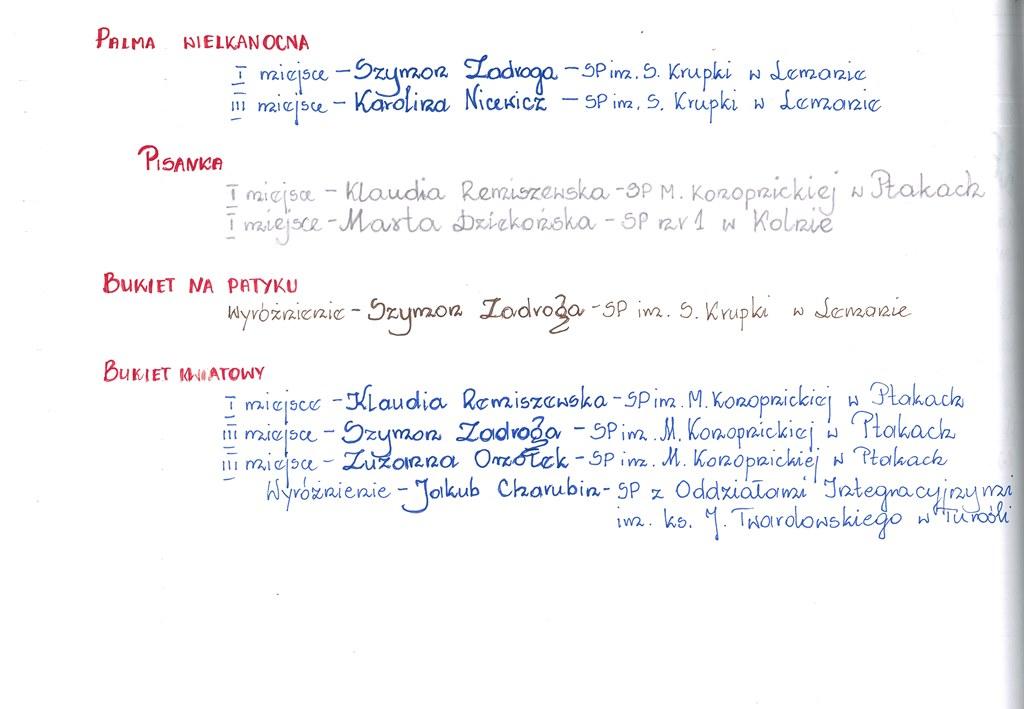 PALMA WIELKANOCNA
I miejsce – Szymon Zadroga – SP im. S. Krupki w Lemanie
III miejsce – Karolina Nicewicz – SP im. S. Krupki w Lemanie
PISANKA
I miejsce – Klaudia Remiszewska – SP M. Konopnickiej w Ptakach
I miejsce – Marta Dziekońska – SP nr 1 w Kolnie
BUKIET NA PATYKU
Wyróżnienie – Szymon Zadroga – SP im. S. Krupki w Lemanie
BUKIET KWIATOWY
I miejsce – Klaudia Remiszewska – SP im. M. Konopnickiej w Ptakach
III miejsce – Szymon Zadroga – SP im. M. Konopnickiej w Ptakach
III miejsce – Zuzanna Orzołek – SP im. M. Konopnickiej w Ptakach
Wyróżnienie – Jakub Charubin – SP z Oddziałami Integracyjnymi
im. ks. J. Twardowskiego w Turośli